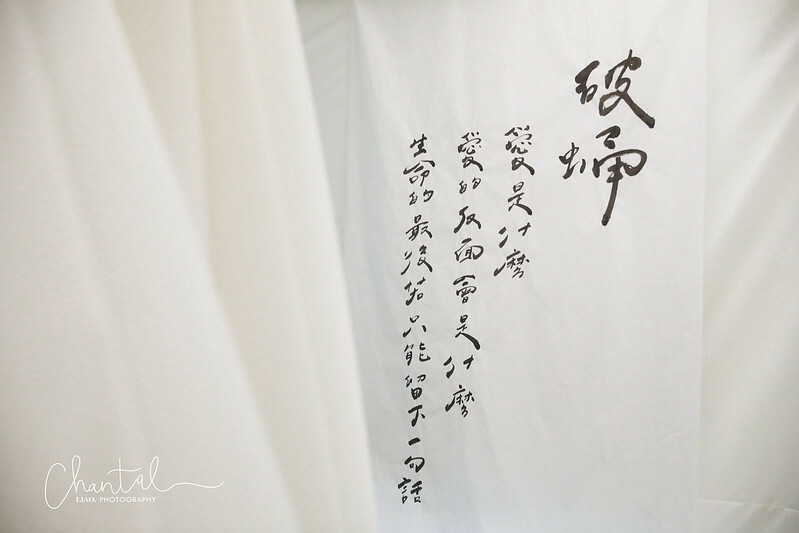 破蛹
愛是什麼
愛的反面會是什麼
生命的最後若只能留下一句話
Chantal
PHOTOGRAPHY